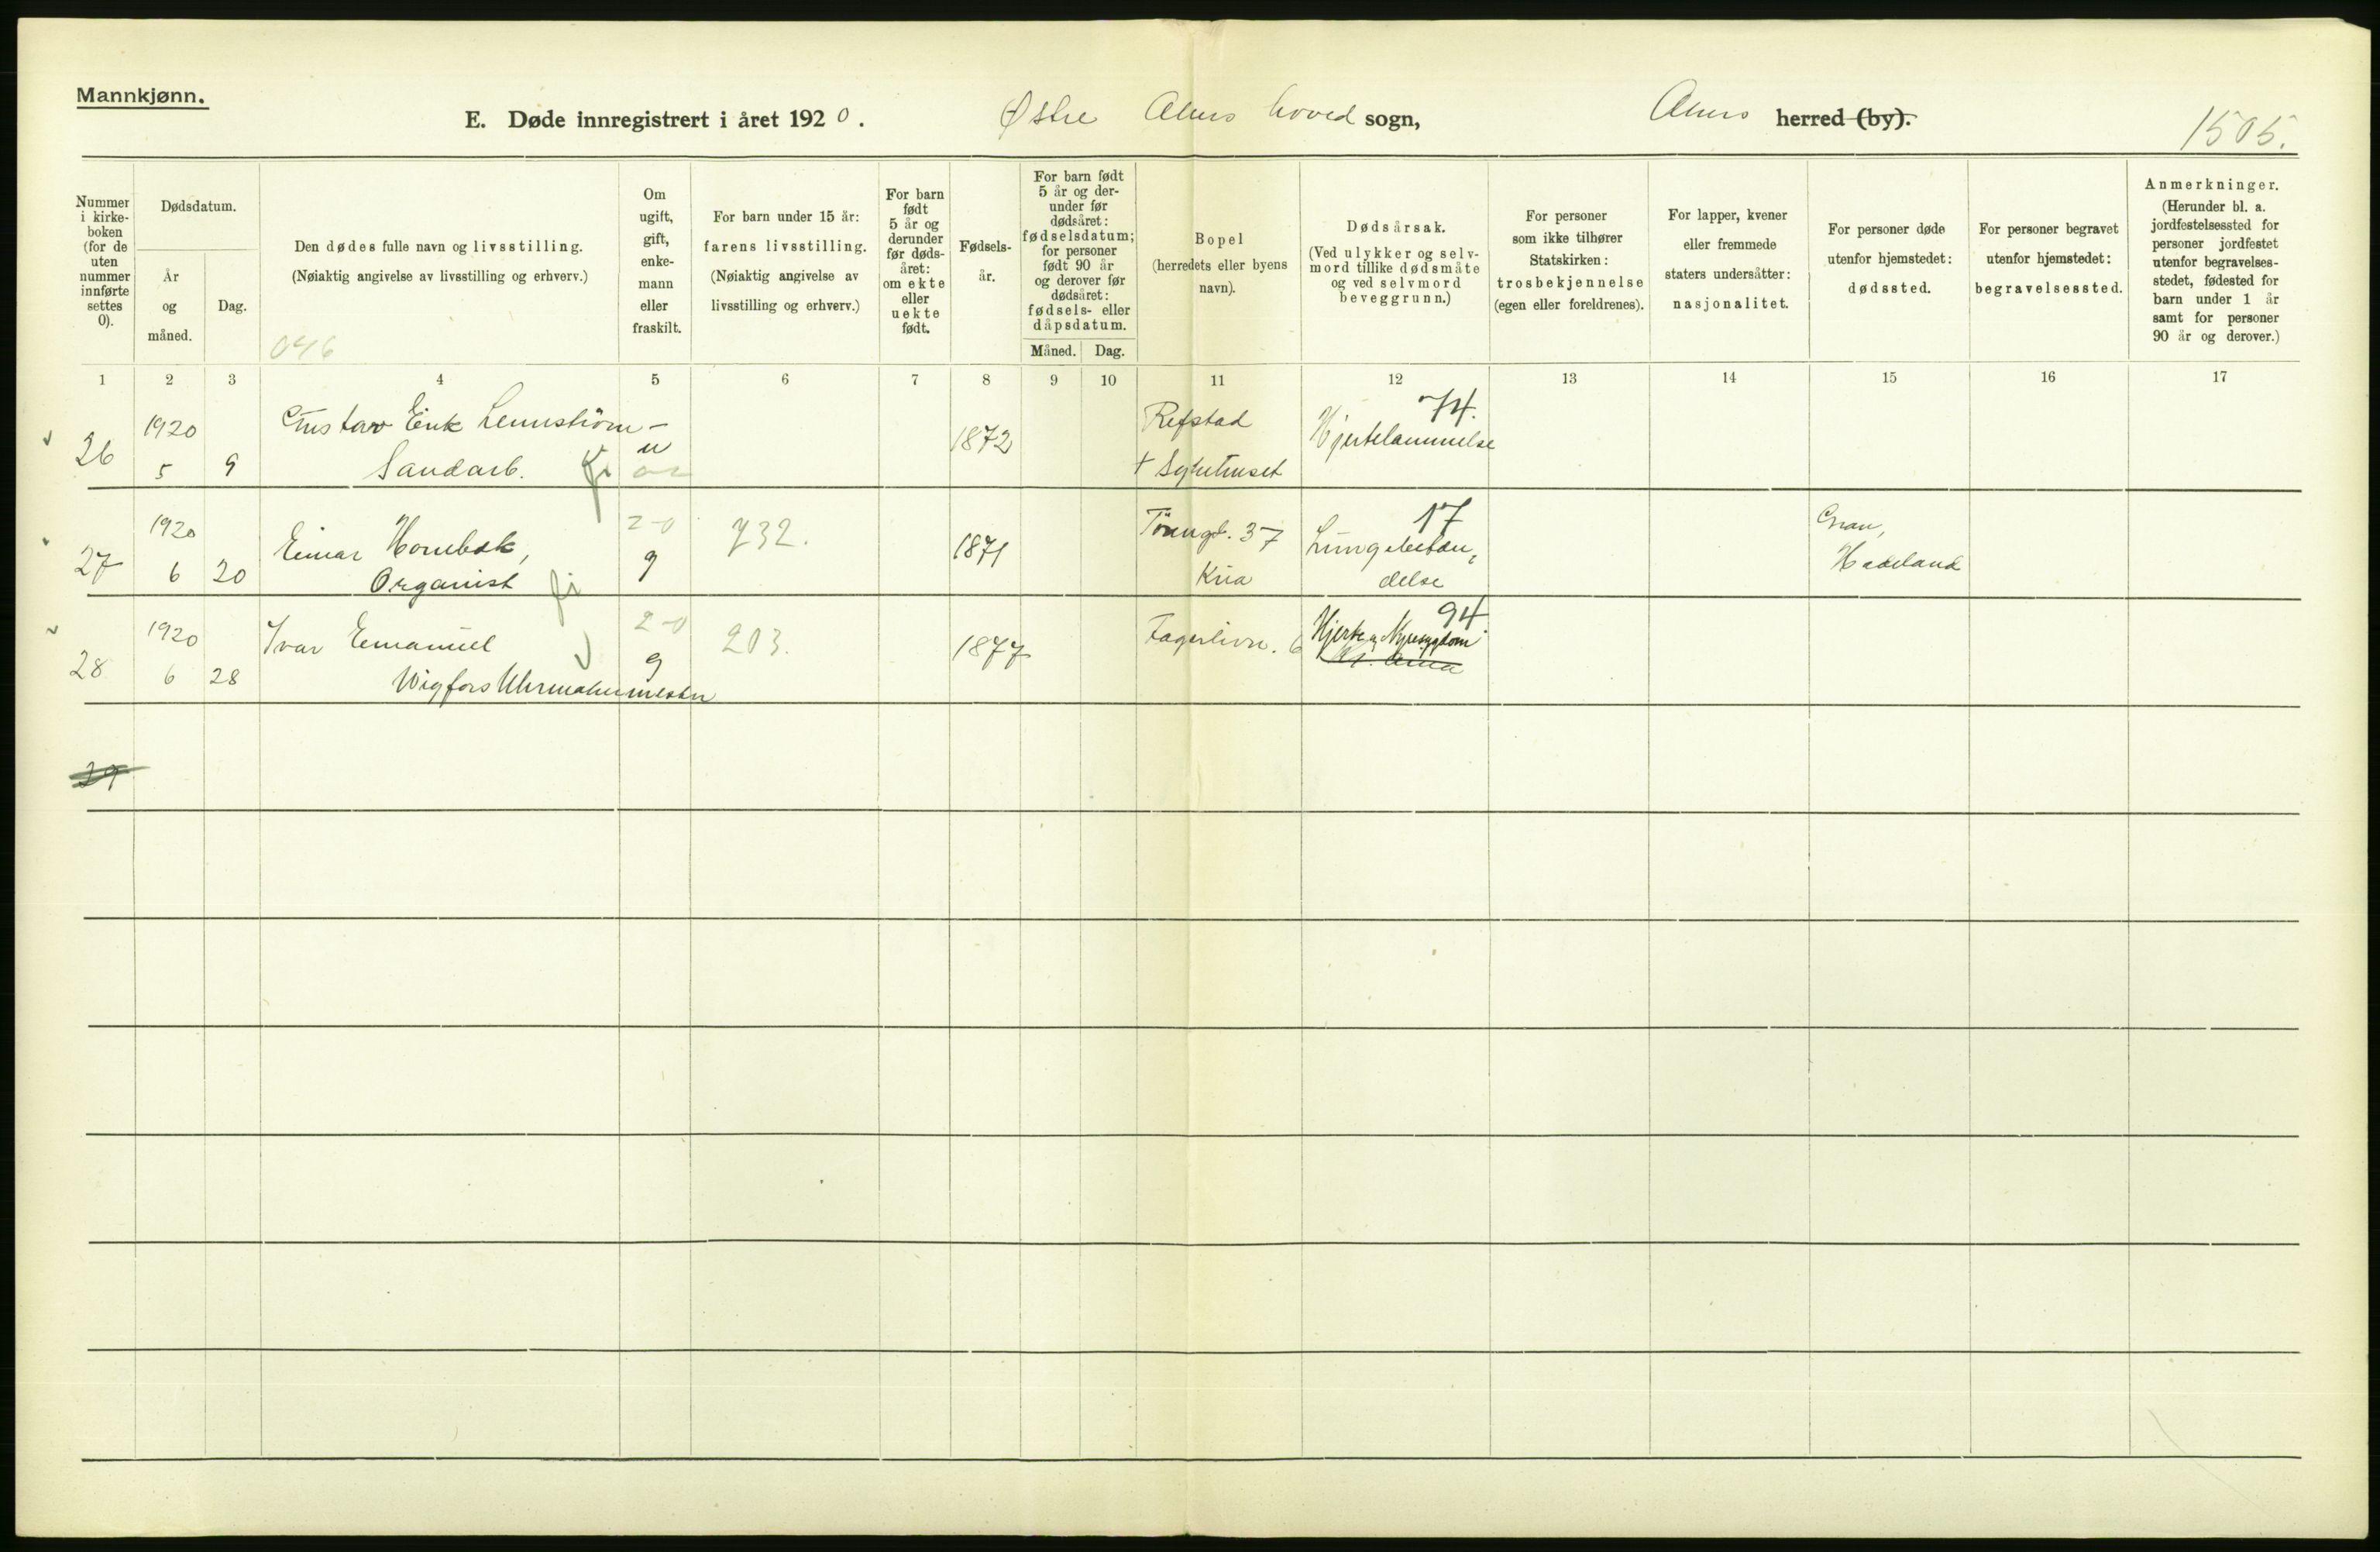 Mannkjønn.
E. Døde innregistrert i året 1920. Østre Akers hoved sogn, Akers herred (by). 1505.
Nummer i kirke-boken (for de uten nummer innførte settes 0).
Dødsdatum.
År og måned.
Dag.
Den dødes fulle navn og livsstilling.
(Nøiaktig angivelse av livsstilling og erhverv.)
046
Om ugift, gift, enke-mann eller fraskilt.
For barn under 15 år:
farens livsstilling.
(Nøiaktig angivelse av livsstilling og erhverv.)
For barn født 5 år og derunder før døds-året: om ekte eller uekte født.
Fødsels-år.
For barn født 5 år og der-under før dødsåret: fødselsdatum; for personer født 90 år og derover før dødsåret: fødsels- eller dåpsdatum.
Måned. Dag.
Bopel
(herredets eller byens navn).
Dødsårsak.
(Ved ulykker og selv-mord tillike dødsmåte og ved selvmord beveggrunn.)
For personer som ikke tilhører Statskirken:
trosbekjennelse
(egen eller foreldrenes).
For lapper, kvener eller fremmede staters undersåtter:
nasjonalitet.
For personer døde utenfor hjemstedet:
dødssted.
For personer begravet utenfor hjemstedet:
begravelsessted.
Anmerkninger.
(Herunder bl. a. jordfestelsessted for personer jordfestet utenfor begravelses-stedet, fødested for barn under 1 år samt for personer 90 år og derover.)
1 2 3 4 5 6 7 8 9 10 11 12 13 14 15 16 17
26 1920 Gustav Erik Lennström - u 1872 Refstad Hjertelammelse 74.
5 9 Sandarb. + Sykehuset
27 1920 Einar Hornbæk, 2-0 g 732. 1871 37 Lungebetæn- 17 Gran,
6 20 Organist Kria delse Hadeland
28 1920 Ivar Emanuel 2-0 g 203. 1877 Fagerlivn. 6 Hjerte og Nyresygdom 94
6 28 Wigfors Uhrmakermester
29